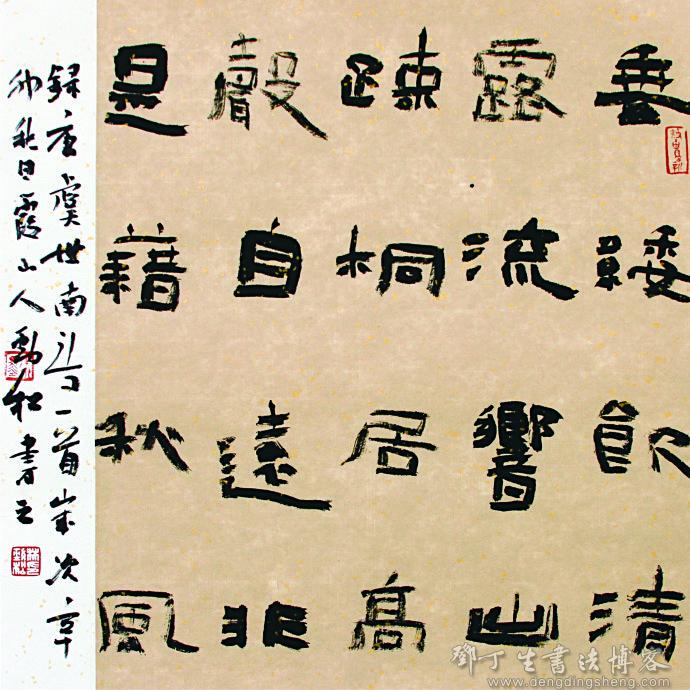 垂緌飲清
露流響出
踈桐居高
聲自遠非
是藉秋風
錄唐虞世南詩一首歲次辛
卯秋日霞山人勁松書之
鄧丁生書法博客
www.dengdingsheng.com